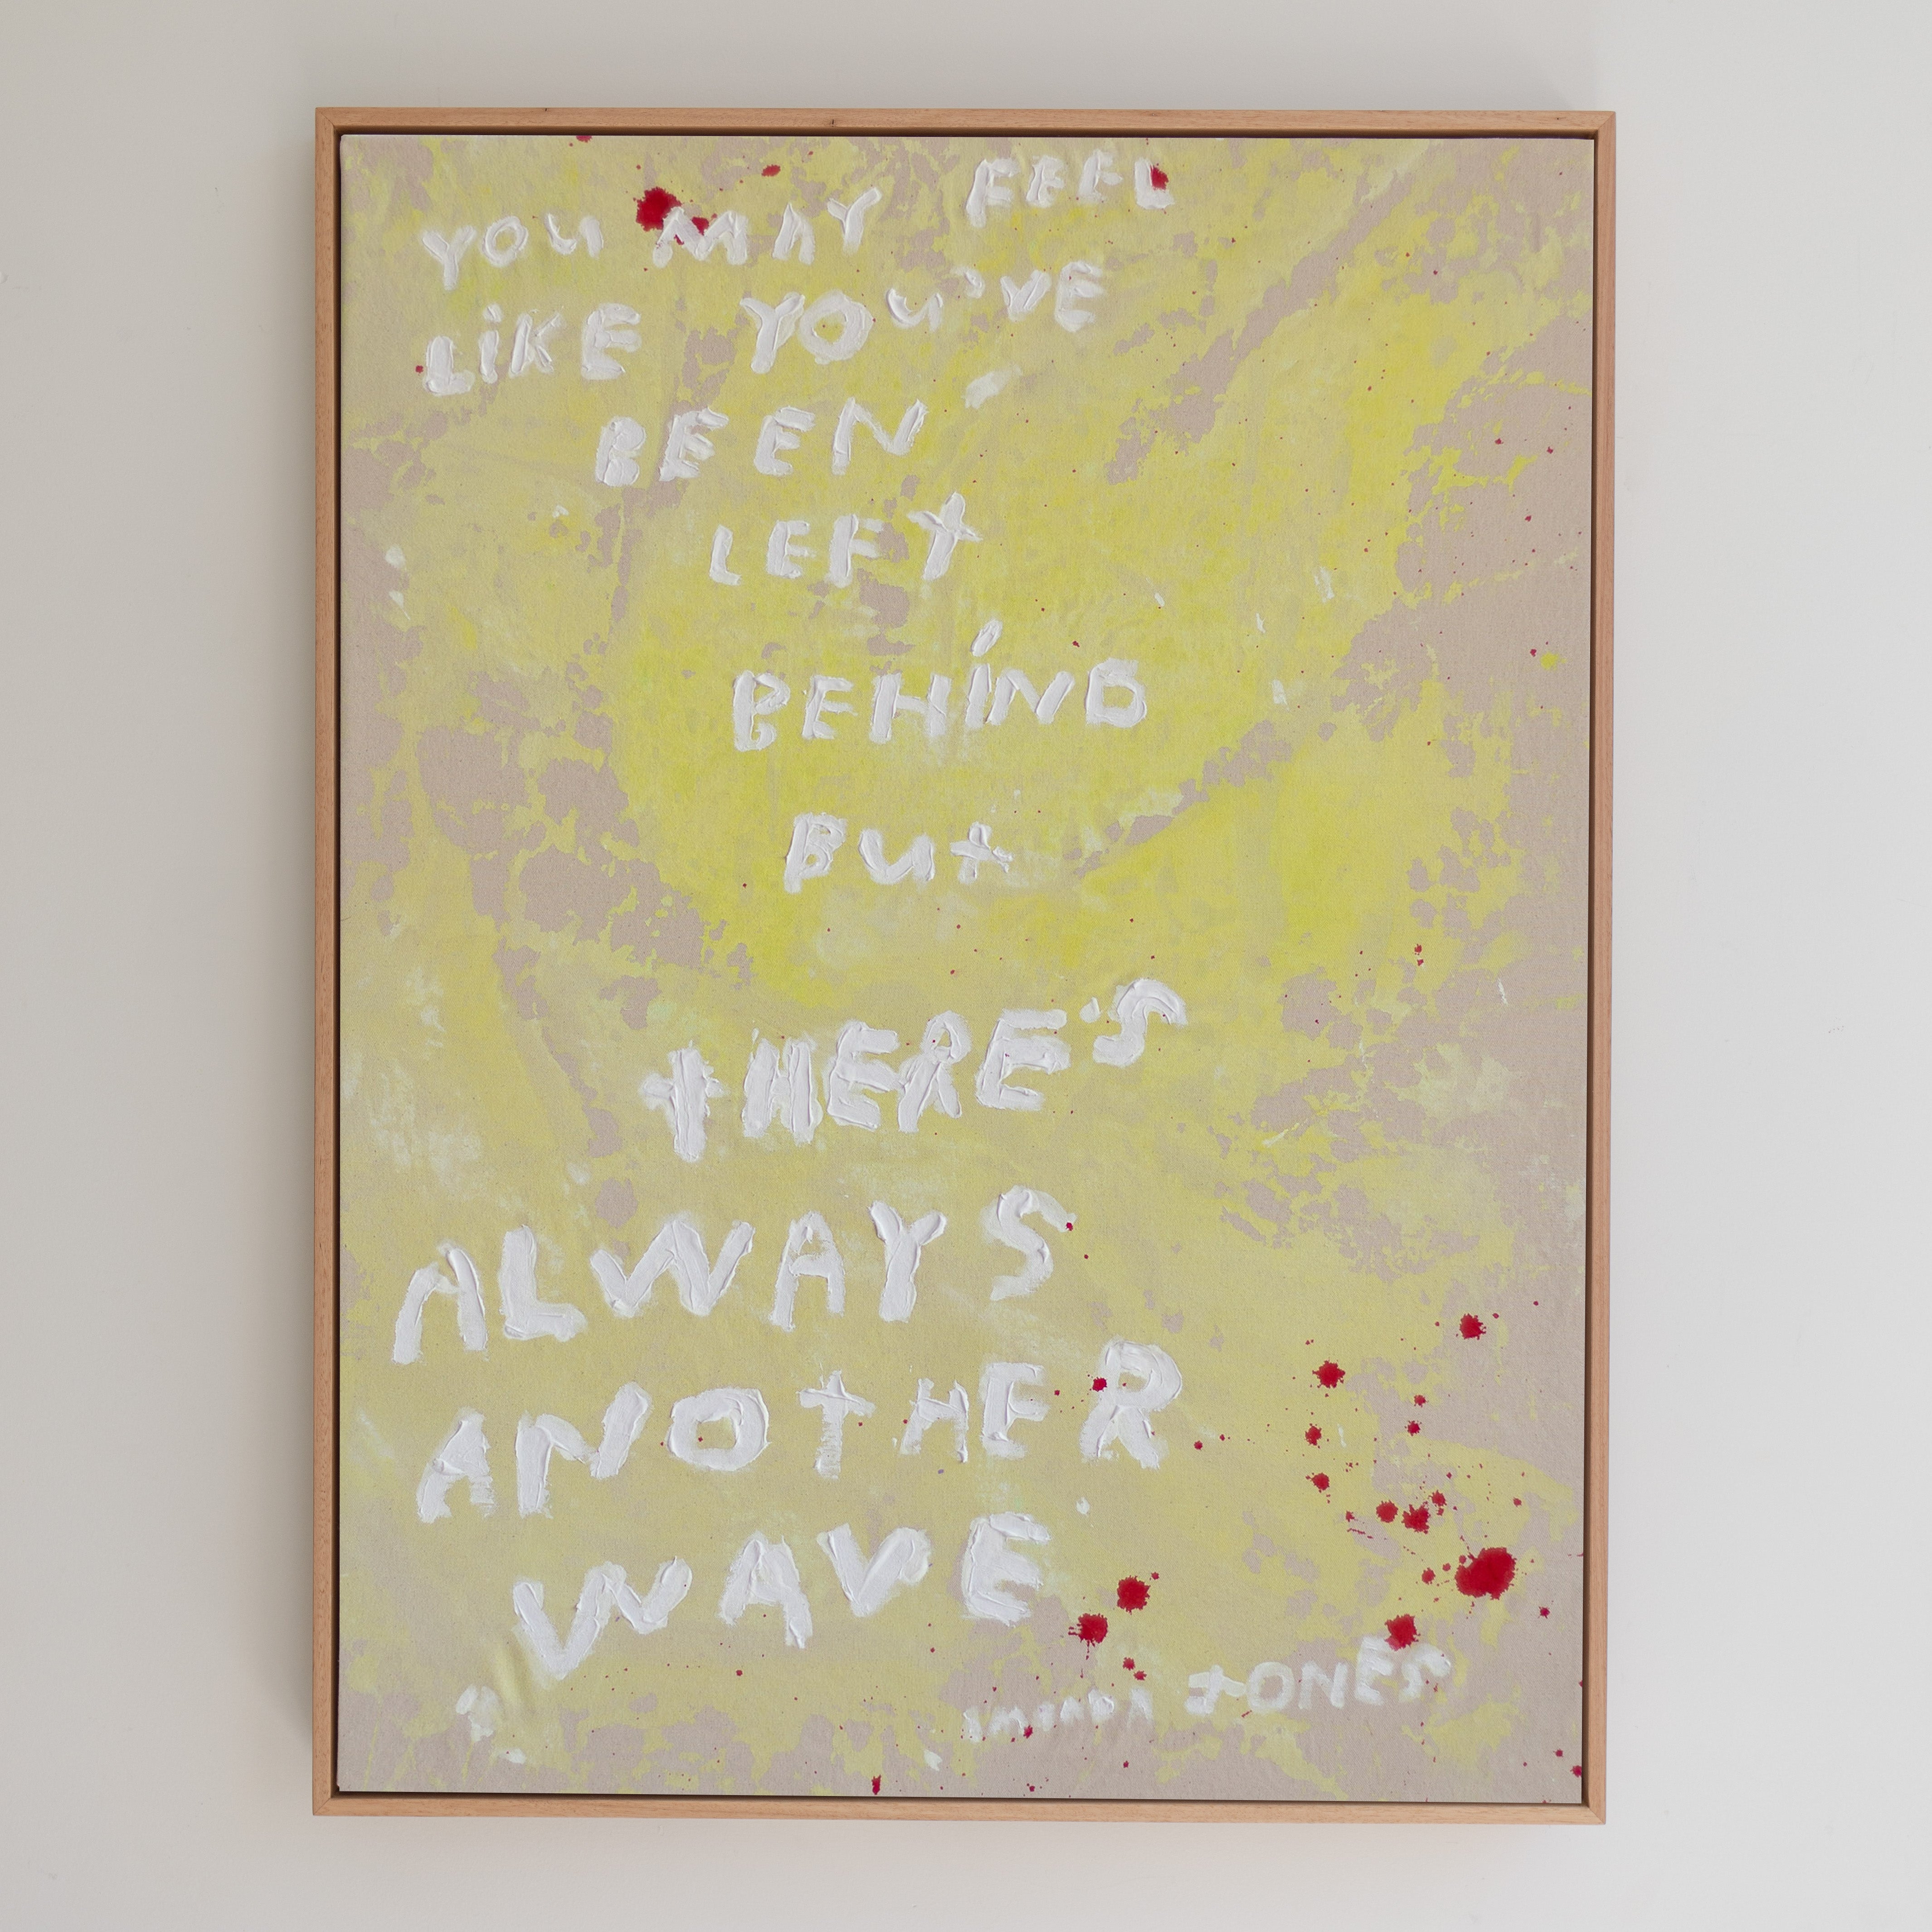 YOU MAY FEEL
LiKE YOU'VE
BEEN
LEFt
BEHiND
But
tHERE'S
ALWAYS
ANOtHER
WAVE
JONES